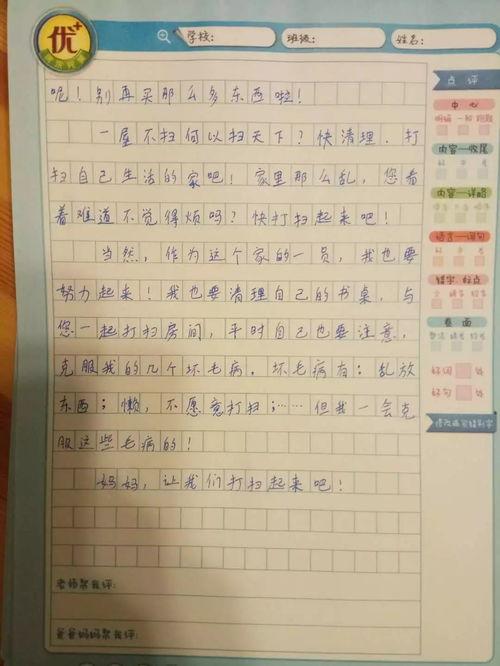 优+
学校:
班级:
姓名:
呢！别再买那么多东西啦！
一屋不扫何以扫天下？快清理，打
扫自己生活的家吧！家里那么乱，您看
着难道不觉得烦吗？快打扫起来吧！
当然，作为这个家的一员，我也要
努力起来！我也要清理自己的书桌，与
您一起打扫房间，平时自己也要注意，
克服我的几个坏毛病。坏毛病有：乱放
东西；懒，不愿意打扫；……但我一会克
服这些毛病的！
妈妈，让我们打扫起来吧！
老师帮我评:
爸爸妈妈帮我评:
点评
中心
明确 一般 跑题
内容—收尾
内容—详略
语言—词句
错字、标点
卷面
好词 处
好句 处